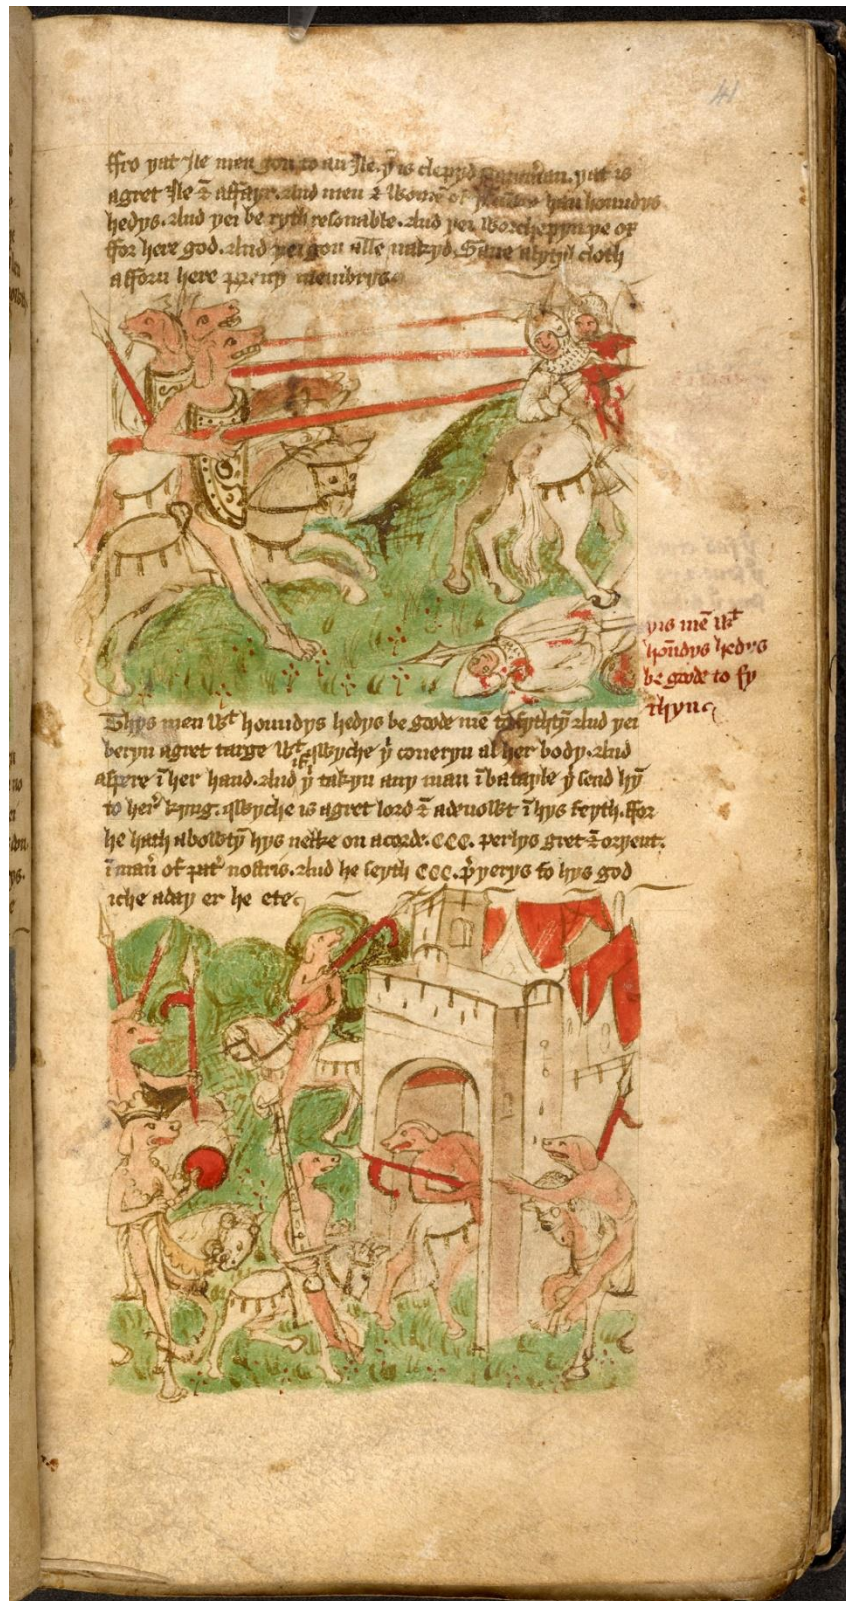 41
ffro yat yle men gon to an yle. yͭ is clepyd yat is
agret yle & affayr. And men & Women of han houndys
hedys. And yei be ryth resonable. And yei Worchepyn ye ox
ffor here god. And yei gon alle nakyd. Saue alytyl cloth
afforn here preuy membrys
yis mē Wͭ
hoūdys hedys
be goode to fy
thyng
Thys men Wͭ houndys hedys be goode mē to fythtȳ And yei
beryn agret targe Wͭ qWyche yͥ coueryn al her body. And
aspere ī her hand. And yͥ takyn any man ī batayle yͥ send hȳ
to her kyng. qWyche is agret lord & adeuoWt ī hys feyth. ffor
he hath aboWtȳ hys nekke on acorde. CCC. perlys gret & oryent.
ī man̄ of pat̉ nostris. And he seyth CCC. p̉yerys to hys god
iche aday er he ete